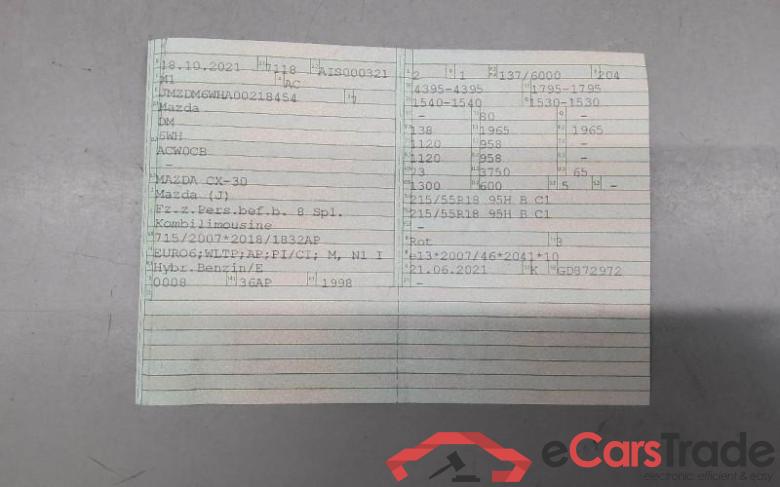 18.10.2021 7118 AIS000321
M1 AC
JMZDM6WHA00218454 7
Mazda
DM
6WH
ACW0CB
-
MAZDA CX-30
Mazda (J)
Fz.z.Pers.bef.b. 8 Spl.
Kombilimousine
715/2007*2018/1832AP
EURO6;WLTP;AP;PI/CI; M, N1 I
Hybr.Benzin/E
0008 36AP 1998
2 1 137/6000 204
4395-4395 1795-1795
1540-1540 1530-1530
- 80 -
138 1965 1965
1120 958 -
1120 958 -
73 3750 65
1300 600 5 -
215/55R18 95H B C1
215/55R18 95H B C1
-
Rot 3
e13*2007/46*2041*10
21.06.2021 K GD872972
-
eCarsTrade
electronic, efficient & easy